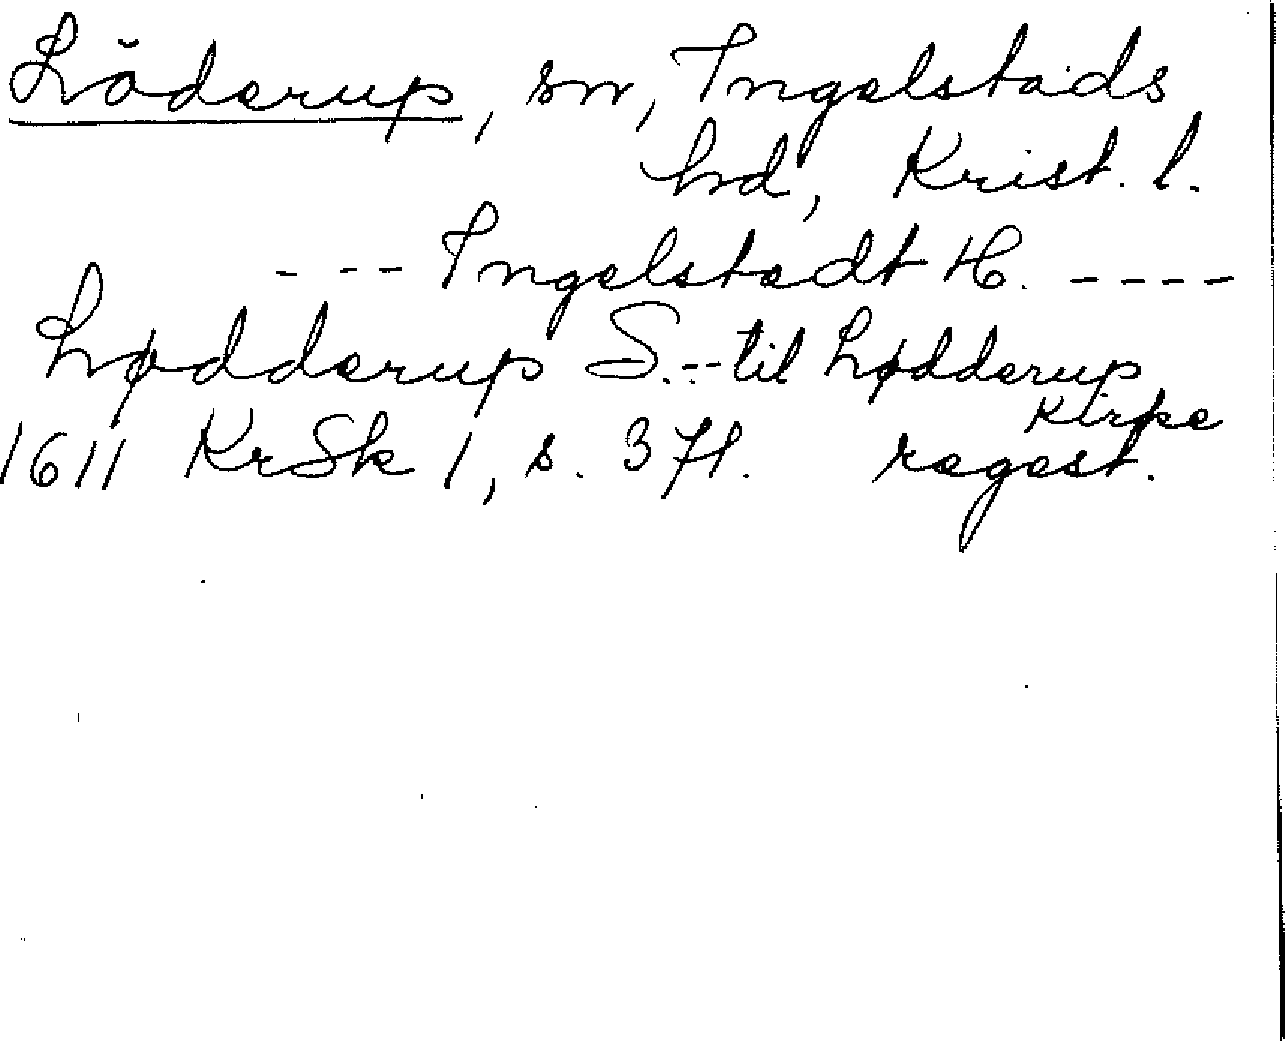 Löderup, sn, Ingelstads
hd, Krist. l.
- - - - Ingelstadt H. - - - -
Lødderup S. - - til Lødderup
Kirke
1611 KrSk 1, s. 371. regest.